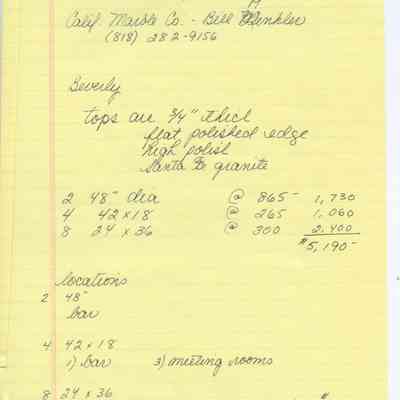 Calif. Marble Co. - Bill Winkler
(818) 282-9156
Beverly
tops are 3/4" thick
flat polished edge
high polish
Santa Fe granite
2 48" dia @ 865- 1,730
4 42 x 18 @ 265 1,060
8 24 x 36 @ 300 2,400
$5,190-
locations
2 48"
bar
4 42 x 18
1) bar 3) meeting rooms
8 24 x 36